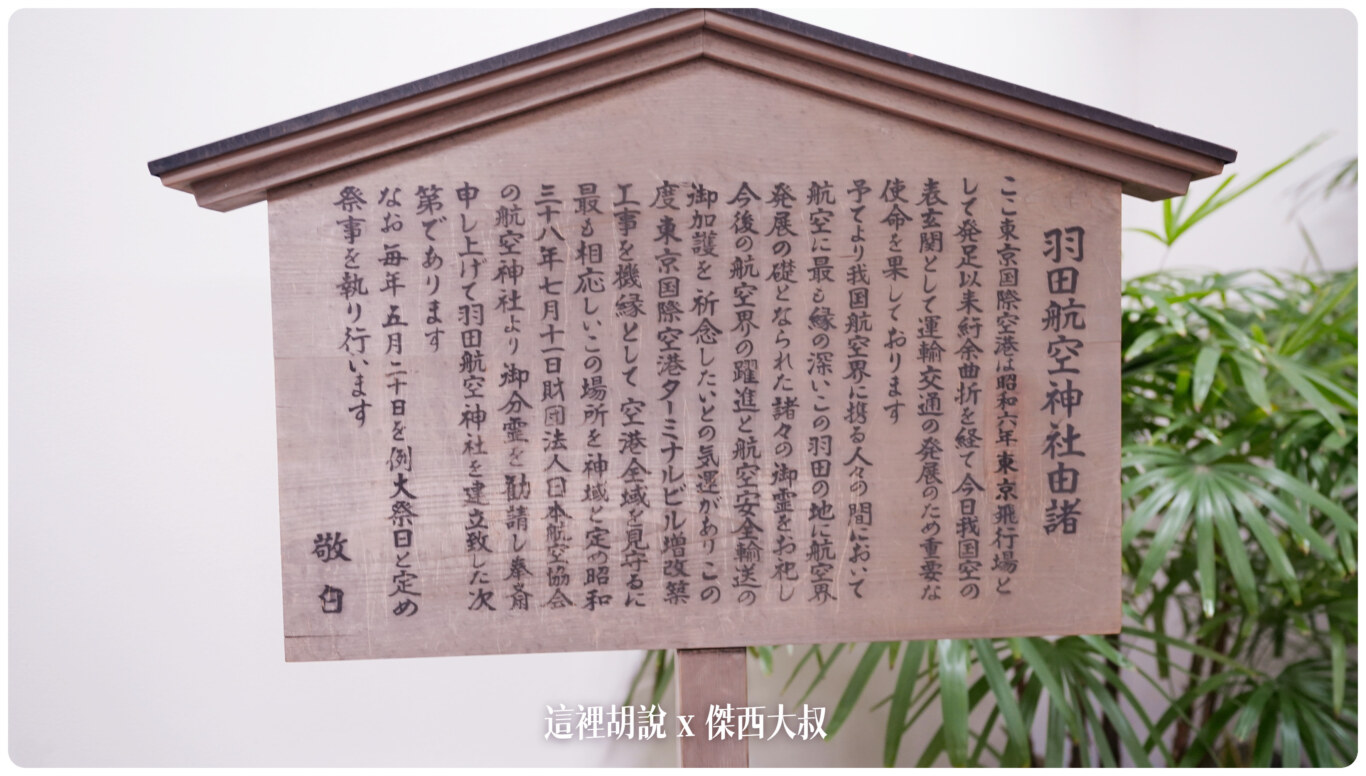 羽田航空神社由諸
ここ東京国際空港は昭和六年東京飛行場と
して発足以来紆余曲折を経て今日我国空の
表玄関として運輸交通の発展のため重要な
使命を果しております
予てより我国航空界に携る人々の間において
航空に最も縁の深いこの羽田の地に航空界
発展の礎となられた諸々の御霊をお祀し
今後の航空界の躍進と航空安全輸送の
御加護を祈念したいとの気運がありこの
度東京国際空港ターミナルビル増改築
工事を機縁として空港全域を見守るに
最も相応しいこの場所を神域と定め昭和
三十八年七月十一日財団法人日本航空協会
の航空神社より御分霊を勧請し奉斎
申し上げて羽田航空神社を建立致した次
第であります
なお毎年五月二十日を例大祭日と定め
祭事を執り行います
敬白
這裡胡說 x 傑西大叔